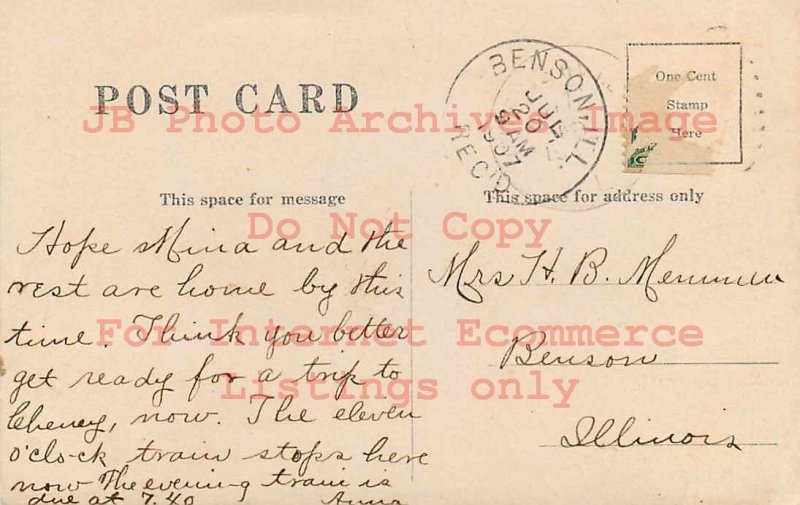 POST CARD
BENSON, ILL.
JUL
20
9 AM
1907
REC'D
One Cent
Stamp
Here
JB Photo Archives Image
This space for message
This space for address only
Do Not Copy
Hope Mina and the
rest are home by this
time. Think you better
get ready for a trip to
Cheney, now. The eleven
o'clock train stops here
now The evening train is
due at 7.40
Anna
For Internet Ecommerce
Listings only
Mrs H. B.
Benson
Illinois